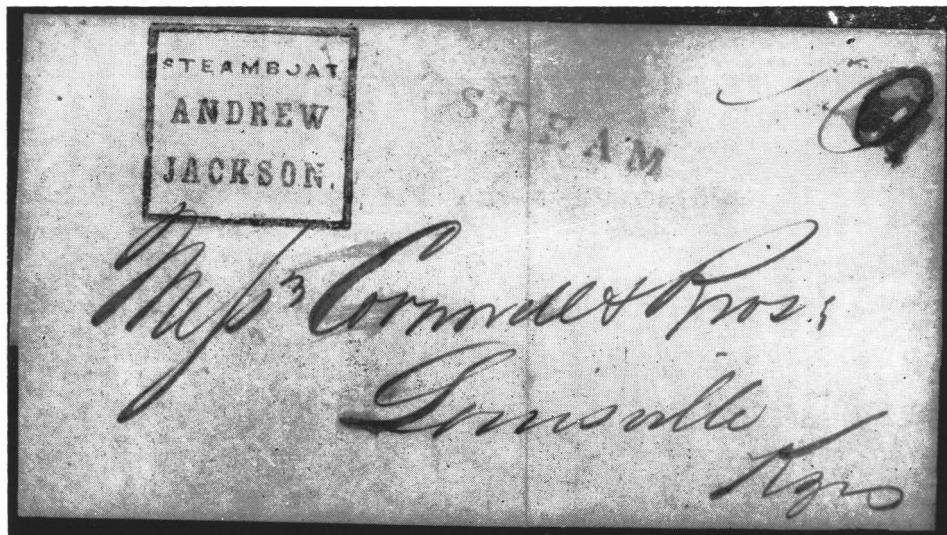 STEAMBOAT
ANDREW
JACKSON.
STEAM
Messrs Cornwall & Bros.
Louisville
Ky